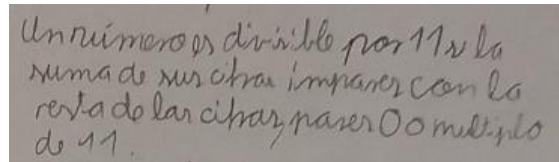 Un número es divisible por 11 si la
suma de sus cifras impares con la
resta de las cifras pares 0 o multiplo
de 11.